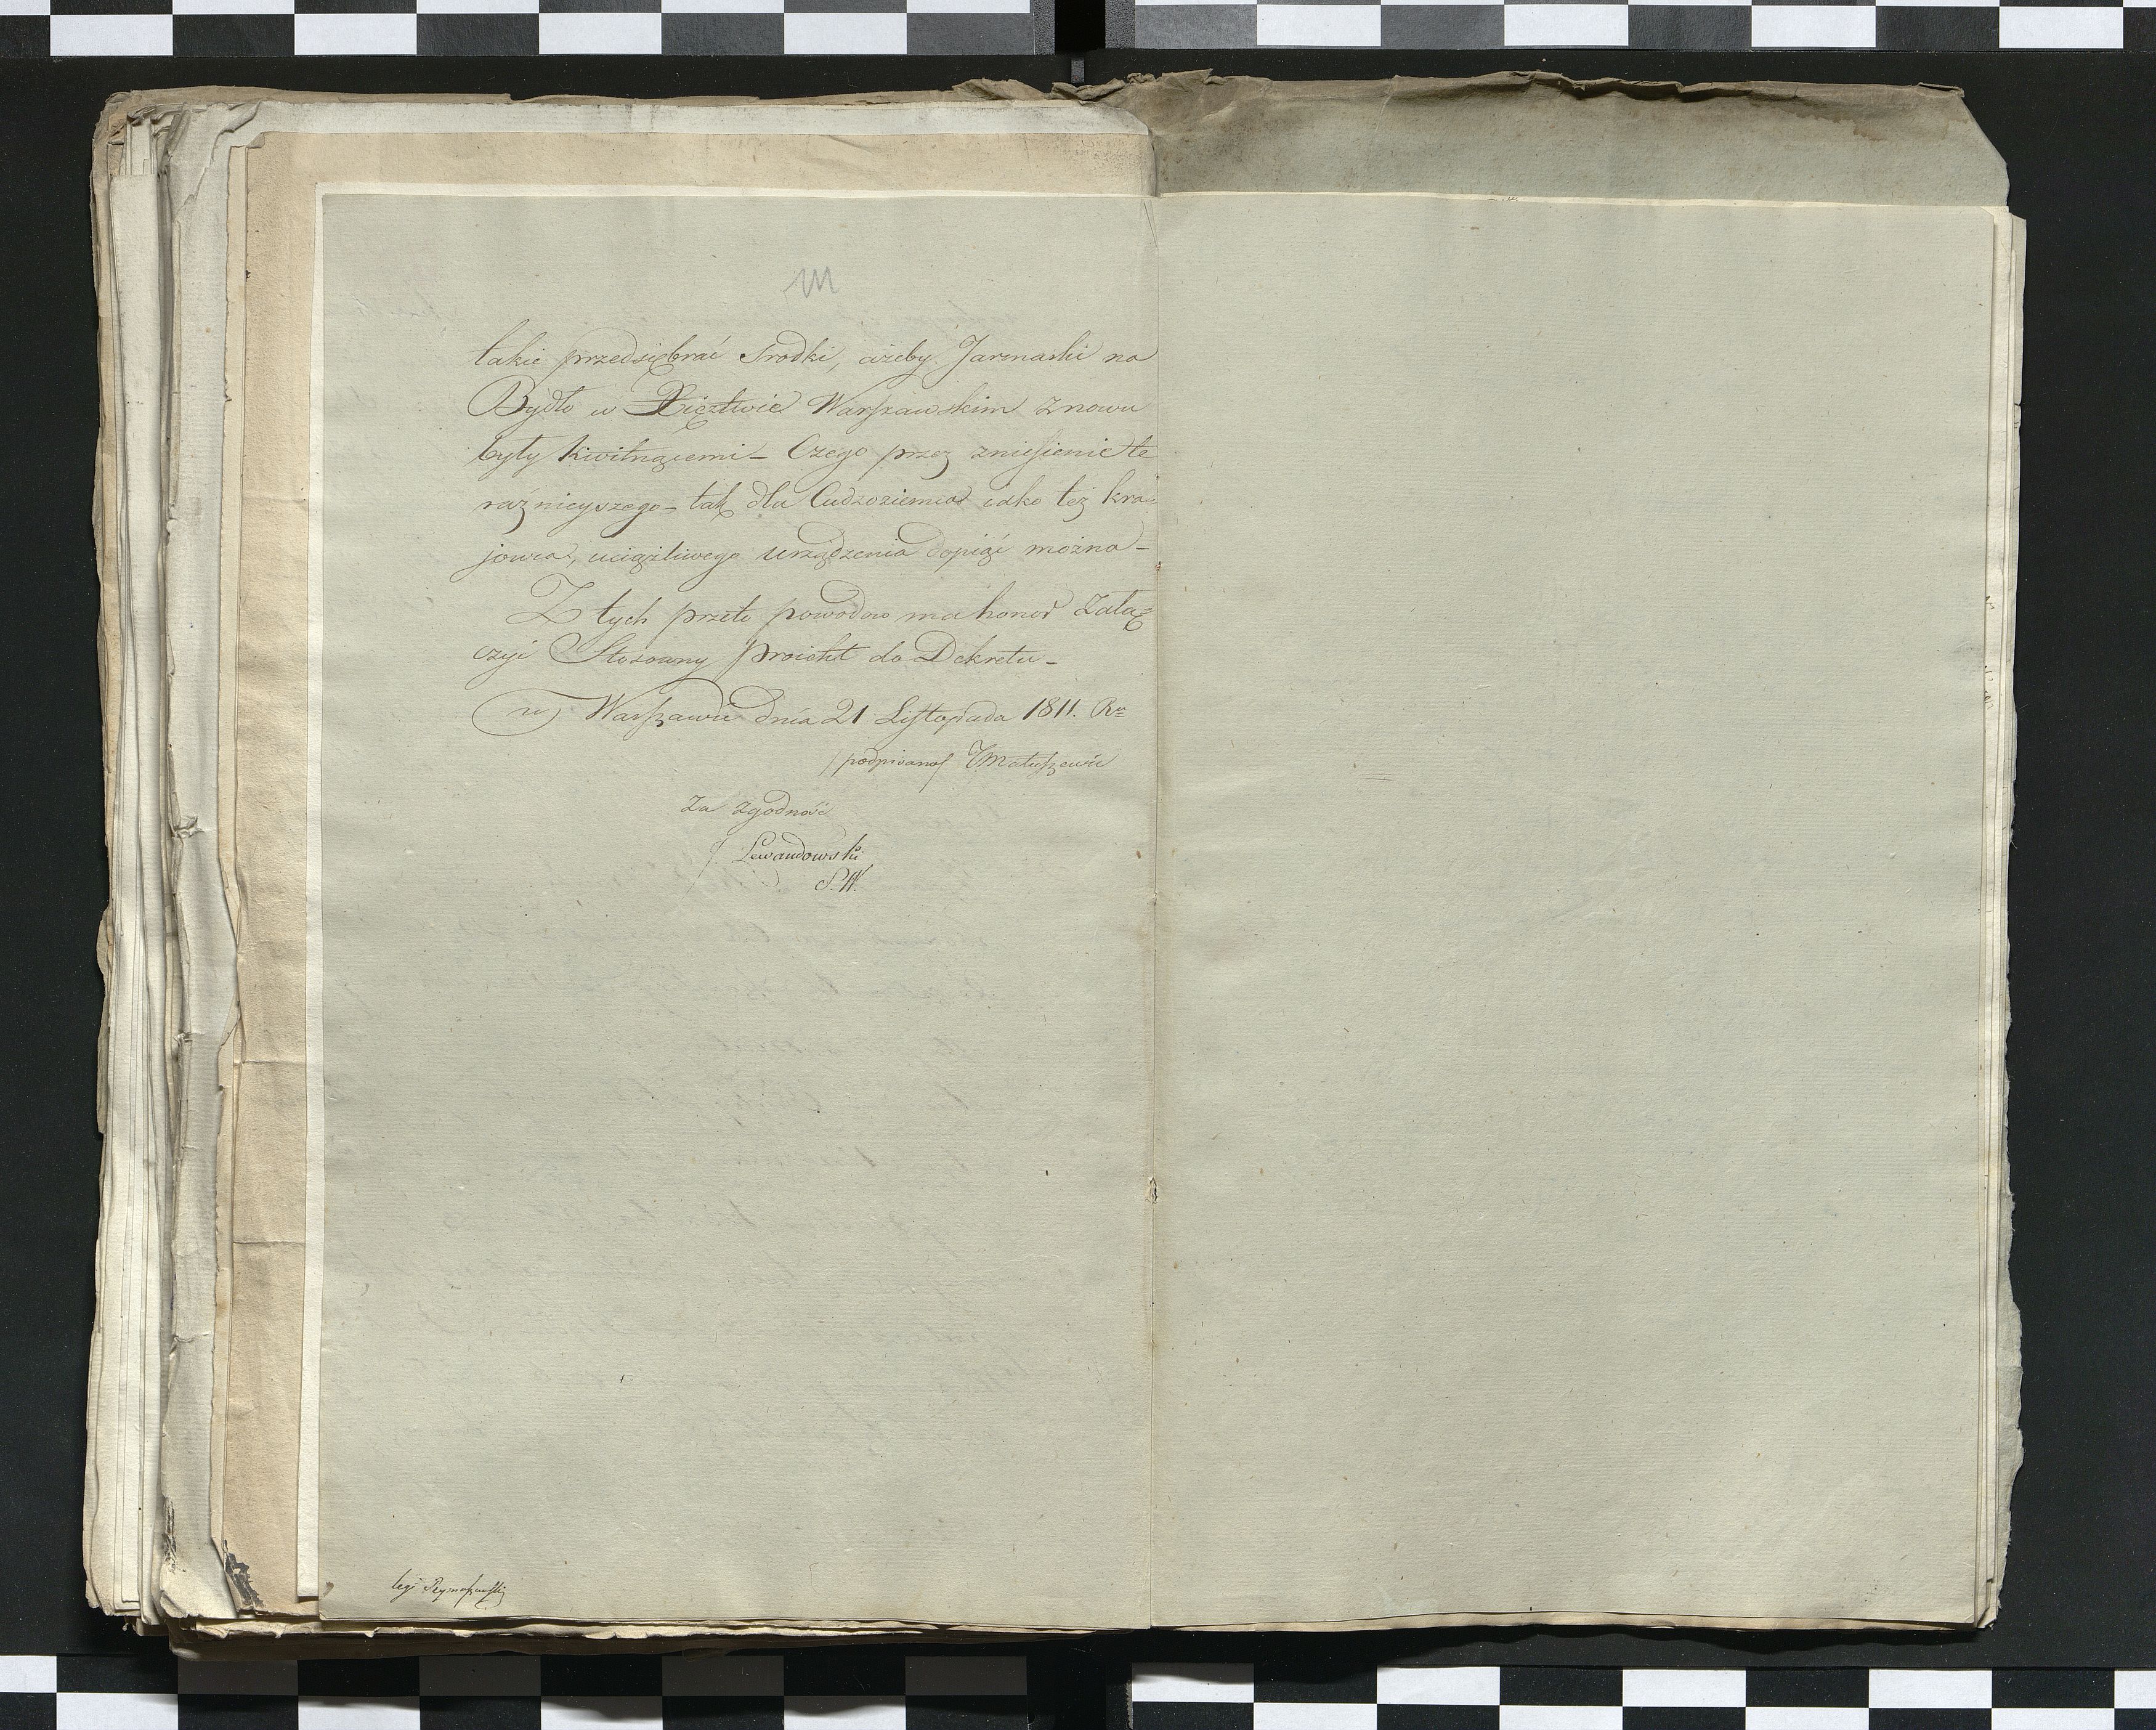 takie przedsiębrać Srodki, ażeby Jarmarki na
Bydło w Xięztwie Warszawskim znowu
były kwitnącemi – Czego przez zniesienie te
raźnieyszego – tak dla Cudzoziemca iako też kra-
jowca, uciążliwego urządzenia dopiąć można –
Z tych przeto powodow ma honor Załą
czyć Stosowny proiekt do Dekretu –
w Warszawie dnia 21 Listopada 1811. Ru
/podpisano/ Matuszewic
Za zgodność
Lewandowski
S.W.